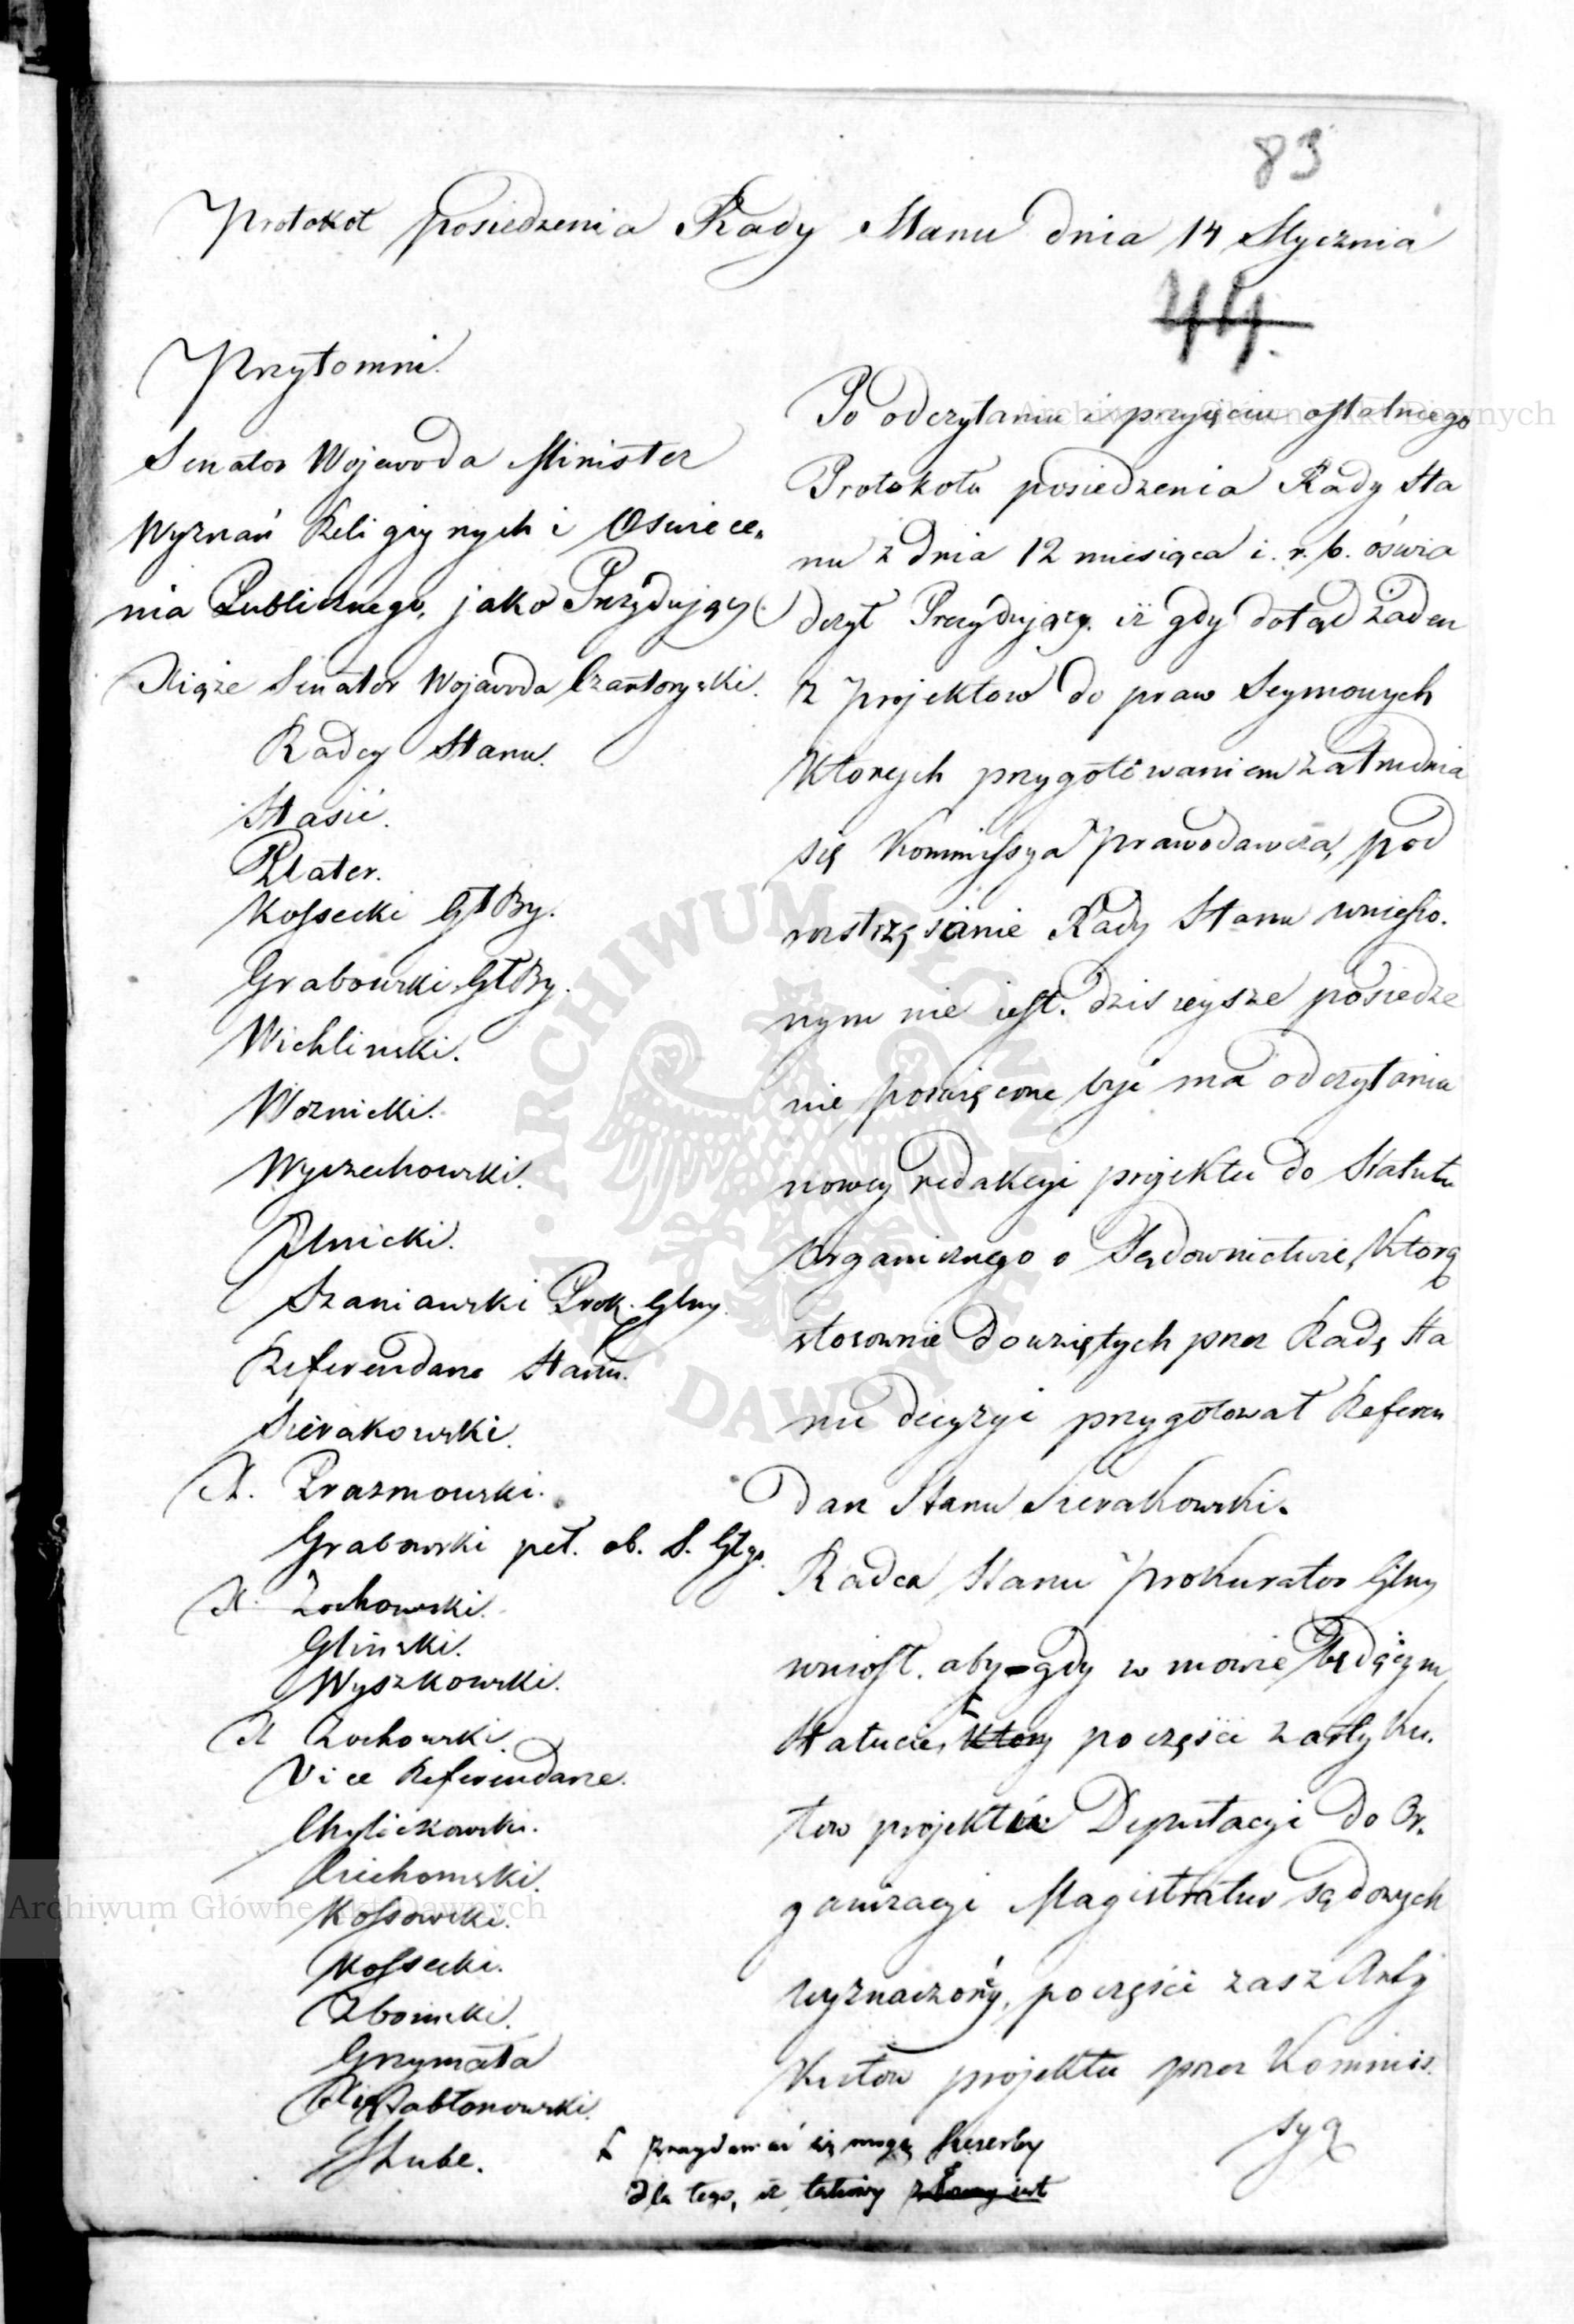 83
Protokoł posiedzenia Rady Stanu dnia 14 Stycznia
44.
Przytomni.
Senator Wojewoda Minister
Wyznań Religiynych i Oswiece„
nia Publicznego, jako Prezydujący
Xiąże Senator Wojewoda Czartoryski.
Radcy Stanu.
Stasic.
Plater.
Kossecki
Grabowski
Wichlinski.
Woznicki.
Wyczechowski.
Szaniawski Prok. Glny.
Referendarze Stanu.
Sierakowski.
X. Prazmowski.
Grabowski peł. ob. S. Glgo.
X. Zochowski.
Gliński.
Wyszkowski.
X Zochowski.
Vice Referendarze.
Chyliczkowski.
Ciechomski.
Kossowski.
Kossecki.
Zboinski.
Grzymała
Xże Jabłonowski.
Hube.
Po odczytaniu i przyięciu ostatniego
Protokołu posiedzenia Rady Sta
nu z dnia 12 miesiąca i r. b. oświa
dczył Prezydujący. iż gdy dotąd żaden
z projektow do praw Seymowych
Ktorych przygotowaniem zatrudnia
się Kommissya prawodawcza, pod
roztrzęsienie Rady Stanu wniesio.
nym nie iest. dzisieysze posiedze
nie poswięcone być ma odczytaniu
nowey redakcyi projektu do Statutu
Organicznego o Sądownictwie, Ktorą
stosownie do wziętych przez Radę Sta
nu decyzyi przygotował Referen
darz Stanu Sierakowski.
Radca Stanu Prokurator Glny
wniosł. aby gdy w mowie będącym
Statucie, Ktory po części z arty Ku.
łow projektu Deputacyi do Or.
ganizacyi Magistratur sądowych
wyznaczoney, po części zas z Arty
Kułow projektu przez Kommis.
syą
ł przydawać się mogą
dla tego, iż takowy złożony iest